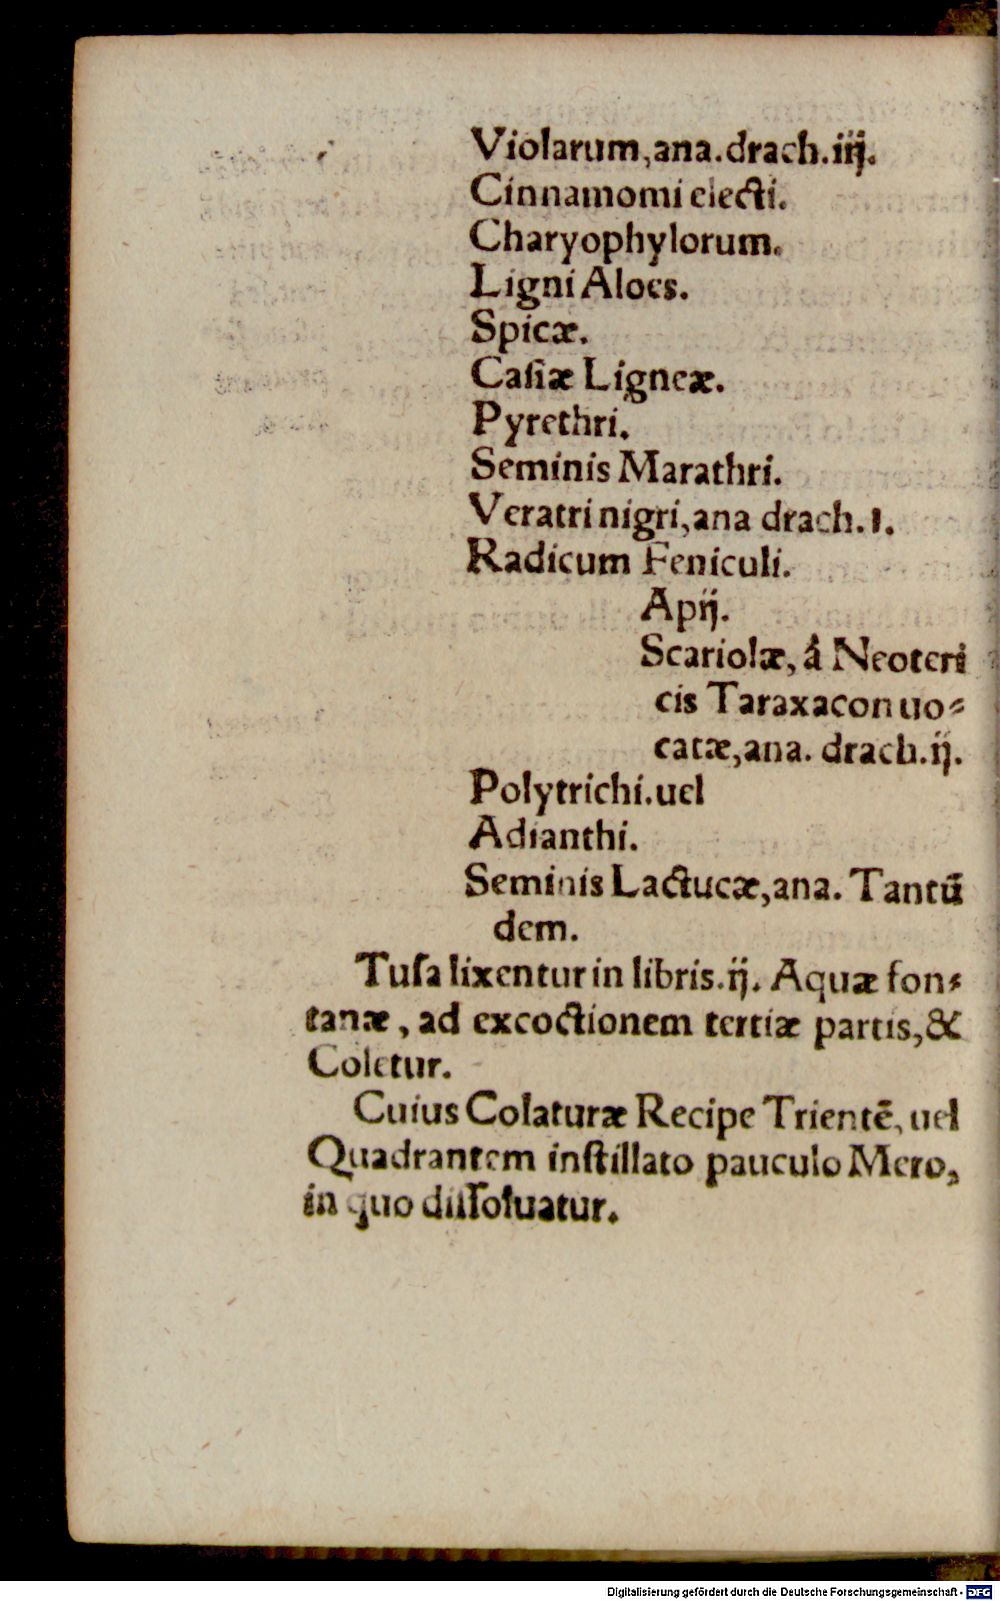 Violarum,ana.drach.iij.
Cinnamomi electi.
Charyophylorum.
Ligni Aloes.
Spicæ.
Casiæ Ligneæ.
Pyrethri.
Seminis Marathri.
Veratri nigri,ana drach.1.
Radicum Feniculi.
Apij.
Scariolæ, á Neoteri
cis Taraxacon uo-
catæ,ana. drach.ij.
Polytrichi.uel
Adianthi.
Seminis Lactucæ,ana. Tantũ
dem.
Tuſa lixentur in libris.ij. Aquæ fon-
tanæ, ad excoctionem tertiæ partis,&
Coletur.
Cuius Colaturæ Recipe Trientẽ, uel
Quadrantem inſtillato pauculo Mero,
in quo diſſoluatur.
Digitalisierung gefördert durch die Deutsche Forschungsgemeinschaft - DFG